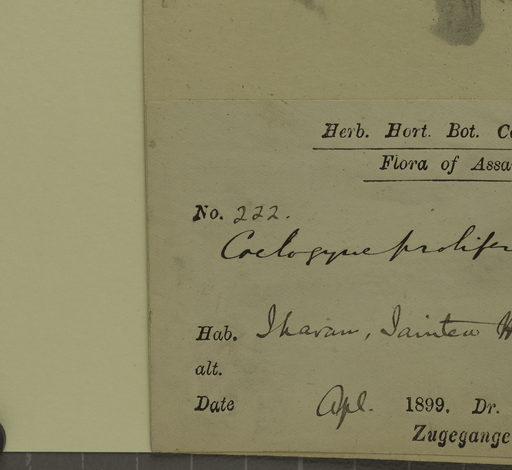 Herb. Hort. Bot. C
Flora of Assa
No. 222.
Coelogyne prolifer
Hab. Jaintea H
alt.
Date Apl. 1899. Dr.
Zugegange